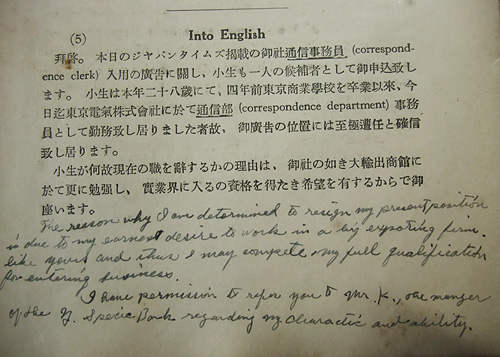 (5) Into English
拜啓。 本日のジヤパンタイムズ掲載の御社通信事務員 (correspond-
ence clerk) 入用の廣告に關し、小生も一人の候補者として御申込致し
ます。 小生は本年二十八歳にて、四年前東京商業學校を卒業以來、今
日迄東京電氣株式會社に於て通信部 (correspondence department) 事務
員として勤務致し居りました者故、 御廣告の位置には至極適任と確信
致し居ります。
小生が何故現在の職を辭するかの理由は、 御社の如き大輸出商館に
於て更に勉强し、 實業界に入るの資格を得たき希望を有するからで御
座います。
The reason why I am determined to resign my present position
is due to my earnest desire to work in a big exporting firm
like yours and thus I may complete my full qualification
for entering business.
I have permission to refer you to Mr. K., the manger
of the Y. Specie Bank regarding my charactic and ability.